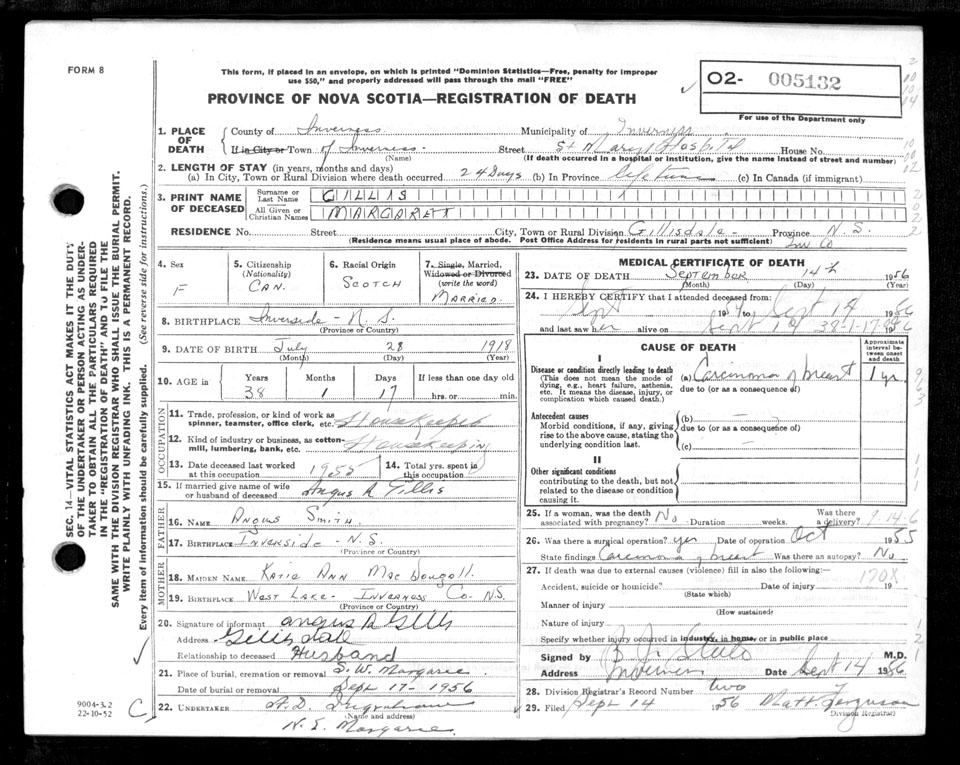 FORM 8
This form, if placed in an envelope, on which is printed "Dominion Statistics—Free, penalty for improper
use $50," and properly addressed will pass through the mail "FREE"
PROVINCE OF NOVA SCOTIA—REGISTRATION OF DEATH
O2- 005132
For use of the Department only
1. PLACE OF DEATH
County of Inverness Municipality of Inverness
If in City or Town of Inverness Street St Mary's Hospital House No.
(Name) (If death occurred in a hospital or institution, give the name instead of street and number)
2. LENGTH OF STAY (in years, months and days)
(a) In City, Town or Rural Division where death occurred 24 Days (b) In Province life time (c) In Canada (if immigrant)
3. PRINT NAME OF DECEASED
Surname or Last Name GILLIS
All Given or Christian Names MARGARET
RESIDENCE No. Street City, Town or Rural Division Gillisdale - Province N. S.
(Residence means usual place of abode. Post Office Address for residents in rural parts not sufficient) Inv Co
4. Sex F
5. Citizenship (Nationality) CAN.
6. Racial Origin SCOTCH
7. Single, Married, Widowed or Divorced (write the word) MARRIED
8. BIRTHPLACE Inverside - N. S.
(Province or Country)
9. DATE OF BIRTH July 28 1918
(Month) (Day) (Year)
10. AGE in Years 38 Months 1 Days 17 If less than one day old hrs. or min.
OCCUPATION
11. Trade, profession, or kind of work as spinner, teamster, office clerk, etc. Housekeeper
12. Kind of industry or business, as cotton-mill, lumbering, bank, etc. Housekeeping
13. Date deceased last worked at this occupation 1955 14. Total yrs. spent in this occupation
15. If married give name of wife or husband of deceased Angus R Gillis
FATHER
16. NAME ANGUS SMITH.
17. BIRTHPLACE INVERSIDE - N.S.
(Province or Country)
MOTHER
18. MAIDEN NAME KATIE ANN MacDougall.
19. BIRTHPLACE WEST LAKE - INVERNESS Co. N.S.
(Province or Country)
20. Signature of informant angus R Gillis
Address Gillisdale
Relationship to deceased Husband
21. Place of burial, cremation or removal S. W. Margaree
Date of burial or removal Sept 17 - 1956
22. UNDERTAKER A. D. Ingraham
(Name and address)
N. E. Margaree
MEDICAL CERTIFICATE OF DEATH
23. DATE OF DEATH September 14th 1956
(Month) (Day) (Year)
24. I HEREBY CERTIFY that I attended deceased from
Sept 19 to Sept 14 1956
and last saw her alive on Sept 14 1956
38-1-17
CAUSE OF DEATH
Approximate interval between onset and death
I
Disease or condition directly leading to death (a) Carcinoma of breast 1 yr.
(This does not mean the mode of dying, e.g., heart failure, asthenia, etc. It means the disease, injury, or complication which caused death.)
due to (or as a consequence of)
Antecedent causes (b) —
Morbid conditions, if any, giving rise to the above cause, stating the underlying condition last.
due to (or as a consequence of)
(c) —
II
Other significant conditions
contributing to the death, but not related to the disease or condition causing it.
25. If a woman, was the death associated with pregnancy? No Duration weeks. Was there a delivery?
9-14-6
26. Was there a surgical operation? yes Date of operation Oct 1955
State findings Carcinoma of breast Was there an autopsy? No
27. If death was due to external causes (violence) fill in also the following:
170X
Accident, suicide or homicide? Date of injury 19
(State which)
Manner of injury
(How sustained)
Nature of injury
Specify whether injury occurred in industry, in home, or in public place
Signed by M.D.
Address Inverness Date Sept 14 1956
28. Division Registrar's Record Number two
29. Filed Sept 14 1956 Matt. Ferguson
Division Registrar
SEC. 14—VITAL STATISTICS ACT MAKES IT THE DUTY OF THE UNDERTAKER OR PERSON ACTING AS UNDERTAKER TO OBTAIN ALL THE PARTICULARS REQUIRED IN THE "REGISTRATION OF DEATH" AND TO FILE THE SAME WITH THE DIVISION REGISTRAR WHO SHALL ISSUE THE BURIAL PERMIT.
WRITE PLAINLY WITH UNFADING INK. THIS IS A PERMANENT RECORD.
Every item of information should be carefully supplied. (See reverse side for instructions.)
9004-3.2
22-10-52
C